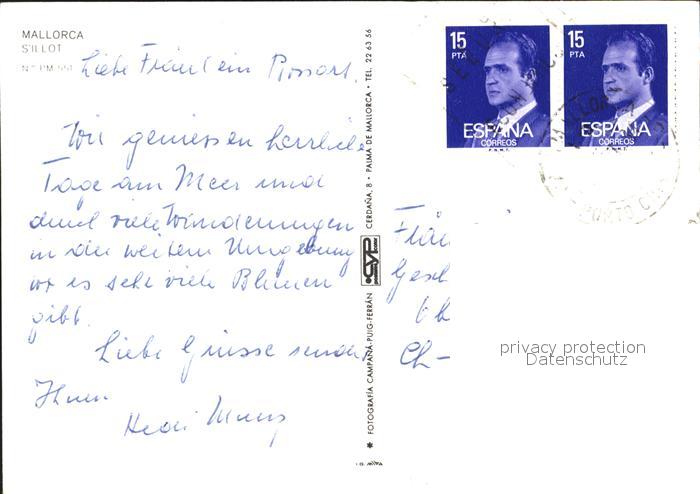 MALLORCA
S'ILLOT
Nº PM 551
Liebe Fräulein
Wir geniessen herrliche
Tage am Meer und
durch viele Wanderungen
in die weitere Umgebung
wo es sehr viele Blumen
gibt.
Liebe Grüsse sendet
Ihnen
Hedi
✱ FOTOGRAFÍA CAMPAÑÁ-PUIG-FERRÁN
CYP
CERDAÑA, 8 • PALMA DE MALLORCA • TEL. 22 63 56
15
PTA
ESPAÑA
CORREOS
F.N.M.T.
15
PTA
ESPAÑA
CORREOS
F.N.M.T.
PORTO CRISTO
Fräu
Gesch
Ch-
privacy protection
Datenschutz